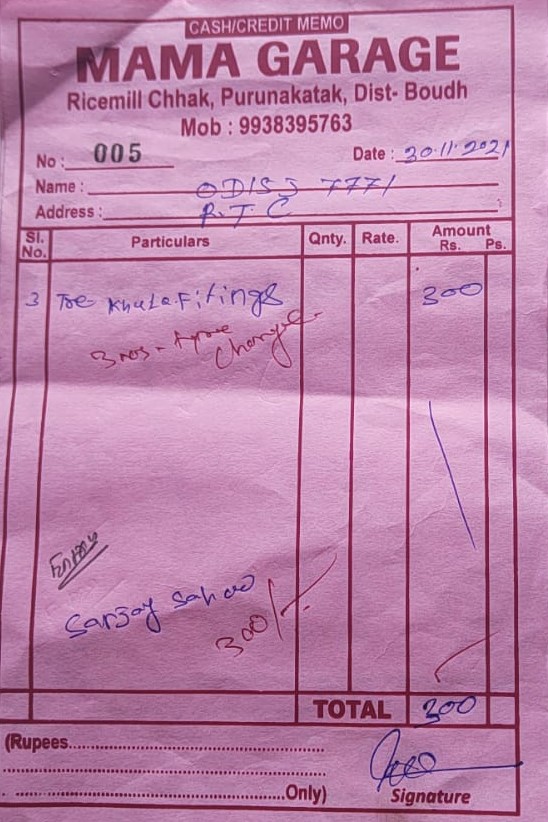 CASH/CREDIT MEMO
MAMA GARAGE
Ricemill Chhak, Purunakatak, Dist- Boudh
Mob : 9938395763
No : 005 Date : 30.11.2021
Name : ODISJ 7771
Address : R.T.C
Sl. No. Particulars Qnty. Rate. Amount Rs. Ps.
3 Khula Fitings 300
3 nos - Charge
Sanjay Sahoo
300/-
TOTAL 300
(Rupees
Only) Signature